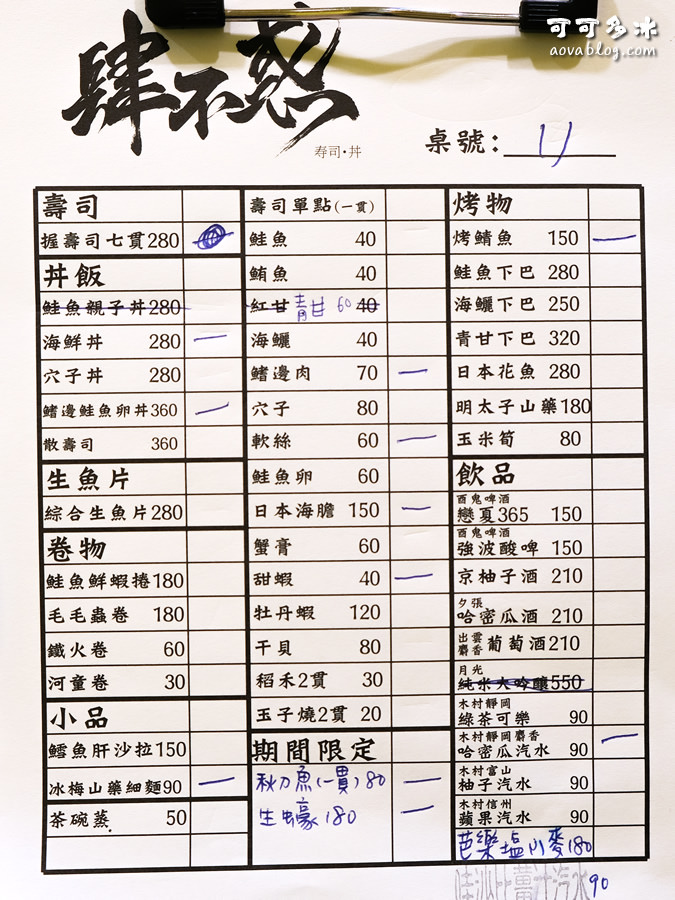 可可多冰
aovablog.com
肆不惑
寿司・丼
桌號：
壽司
握壽司七貫280
丼飯
鮭魚親子丼280
海鮮丼 280
穴子丼 280
鰭邊鮭魚卵丼360
散壽司 360
生魚片
綜合生魚片280
卷物
鮭魚鮮蝦捲180
毛毛蟲卷 180
鐵火卷 60
河童卷 30
小品
鱈魚肝沙拉150
冰梅山藥細麵90
茶碗蒸 50
壽司單點(一貫)
鮭魚 40
鮪魚 40
紅甘 青甘 60 40
海鱺 40
鰭邊肉 70
穴子 80
軟絲 60
鮭魚卵 60
日本海膽 150
蟹膏 60
甜蝦 40
牡丹蝦 120
干貝 80
稻禾2貫 30
玉子燒2貫 20
期間限定
秋刀魚(一貫)80
生蠔 180
烤物
烤鯖魚 150
鮭魚下巴 280
海鱺下巴 250
青甘下巴 320
日本花魚 280
明太子山藥180
玉米筍 80
飲品
酉鬼啤酒
戀夏365 150
酉鬼啤酒
強波酸啤 150
京柚子酒 210
夕張
哈密瓜酒 210
出雲
麝香 葡萄酒210
月光
純米大吟釀550
木村靜岡
綠茶可樂 90
木村靜岡麝香
哈密瓜汽水 90
木村富山
柚子汽水 90
木村信州
蘋果汽水 90
芭樂塩小麥180
90